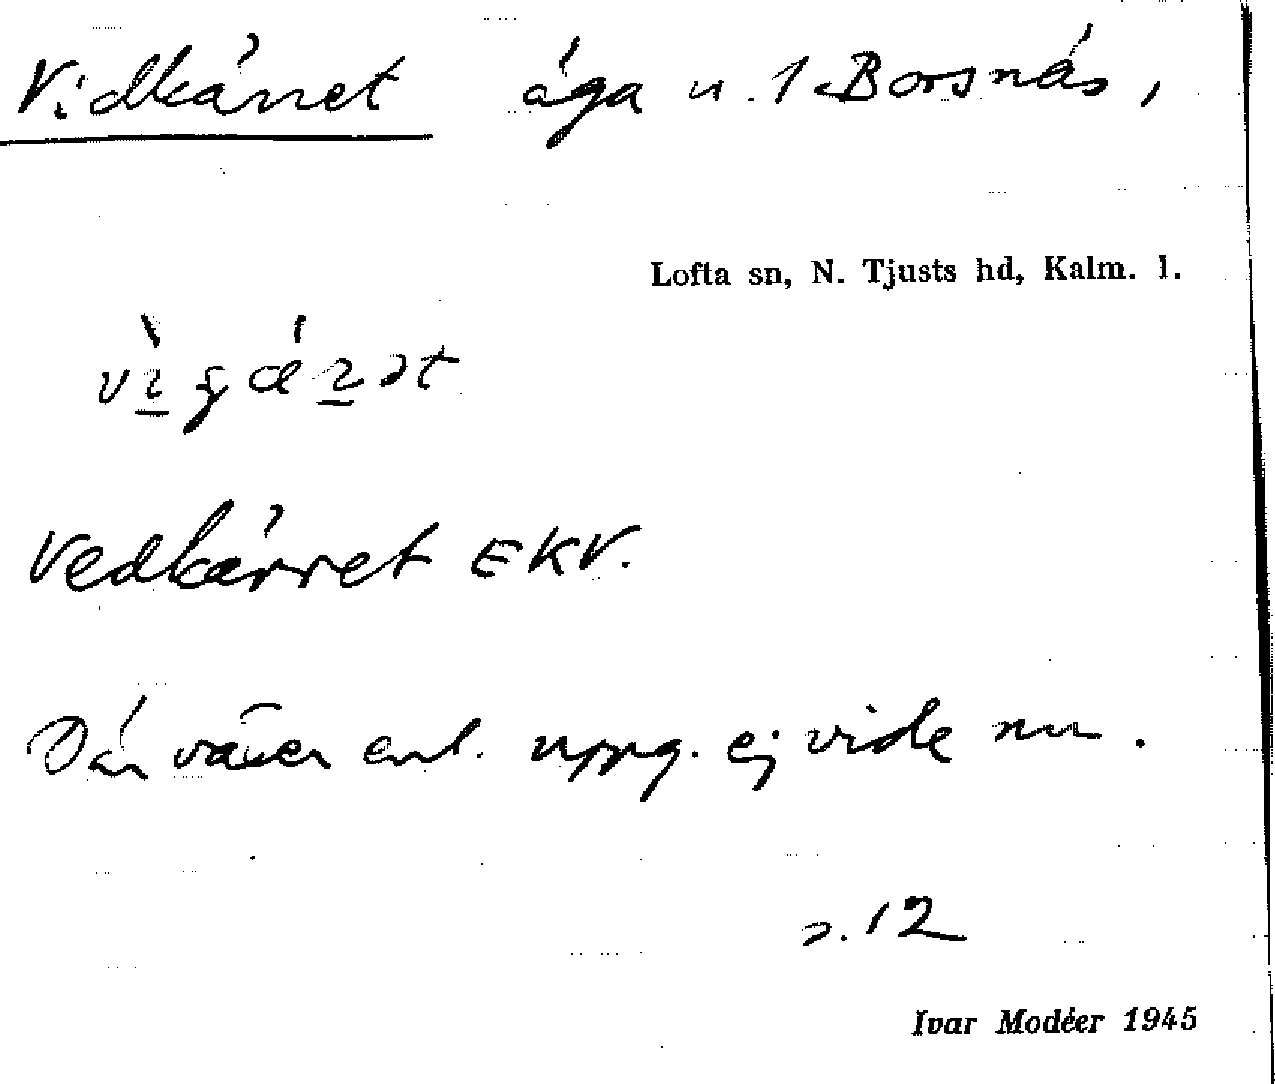 Vidkärret äga n. 1 Borsnäs,
Lofta sn, N. Tjusts hd, Kalm. l.
Vedkärret EKV.
Där växer enl. uppg. ej vide nu.
s. 12
Ivar Modéer 1945